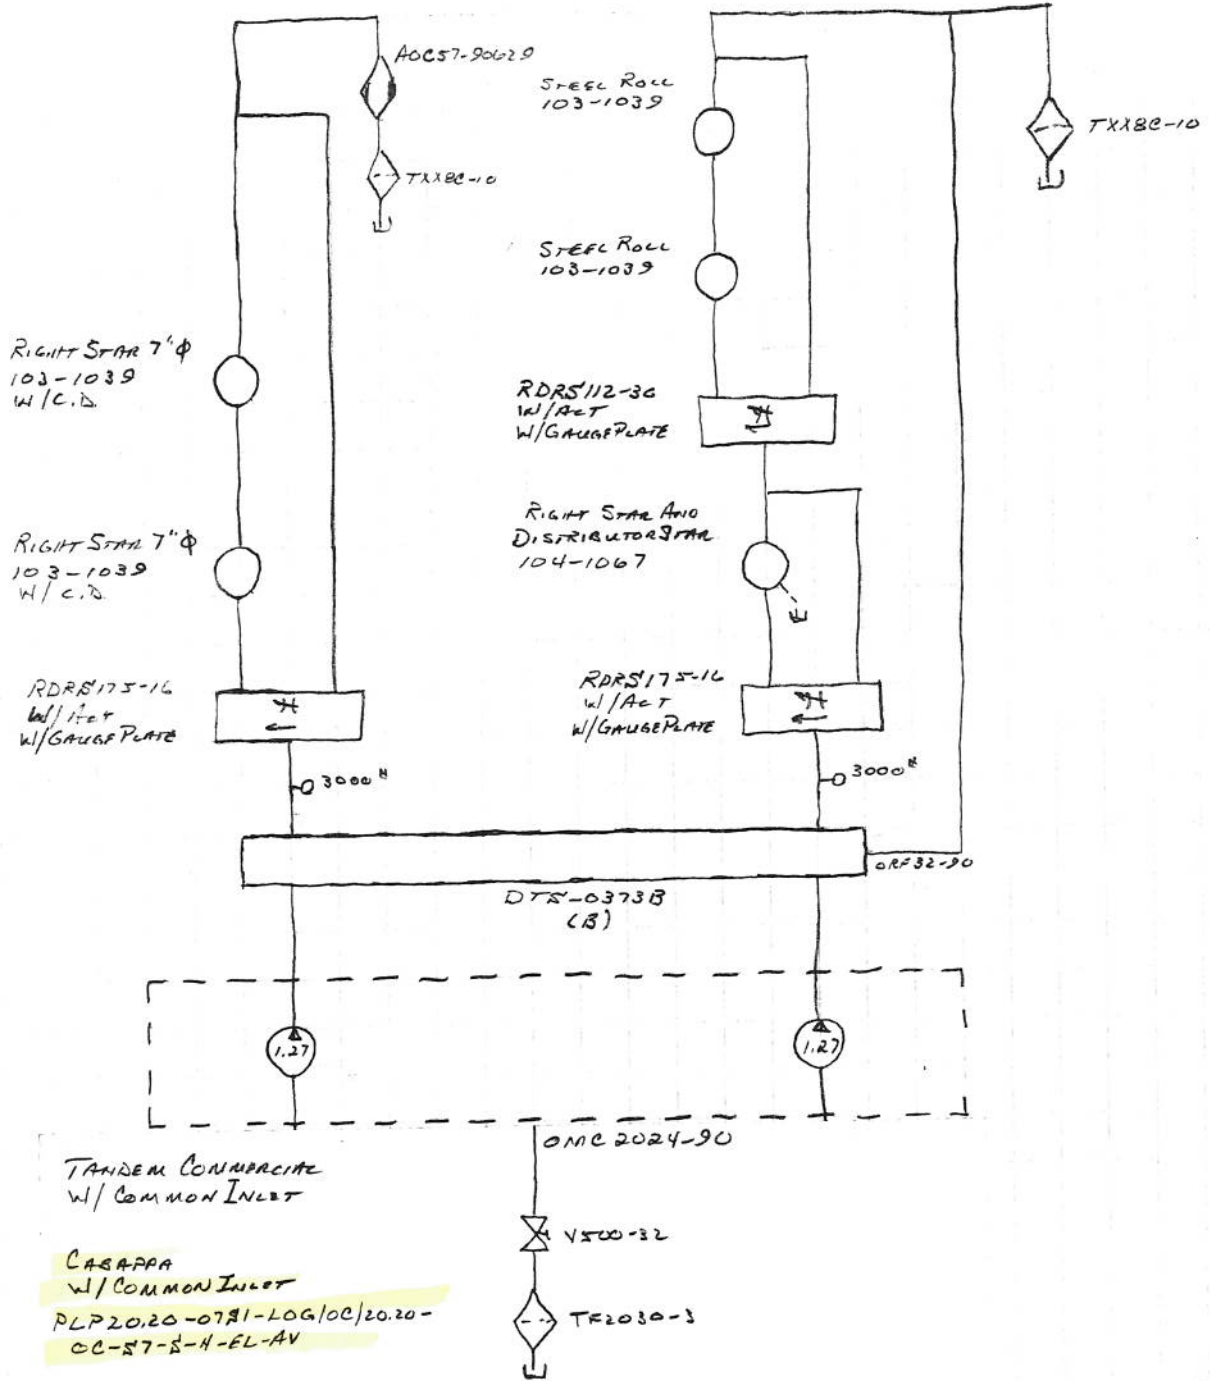 AOC57-90629
TXX8C-10
STEEL ROLL
103-1039
TXX8C-10
STEEL ROLL
103-1039
RIGHT STAR 7"φ
103-1039
W/C.D.
RDRS112-30
W/ACT
W/GAUGE PLATE
RIGHT STAR AND
DISTRIBUTOR STAR
104-1067
RIGHT STAR 7"φ
103-1039
W/C.D.
RDRS175-16
W/ACT
W/GAUGE PLATE
RDRS175-16
W/ACT
W/GAUGE PLATE
3000#
3000#
ORF32-90
DTS-0373B
(B)
1.27
1.27
OMC2024-90
TANDEM COMMERCIAL
W/COMMON INLET
V500-32
CASAPPA
W/COMMON INLET
PLP20.20-07S1-LOG/OC/20.20-
OC-S7-S-N-EL-AV
TF2030-3